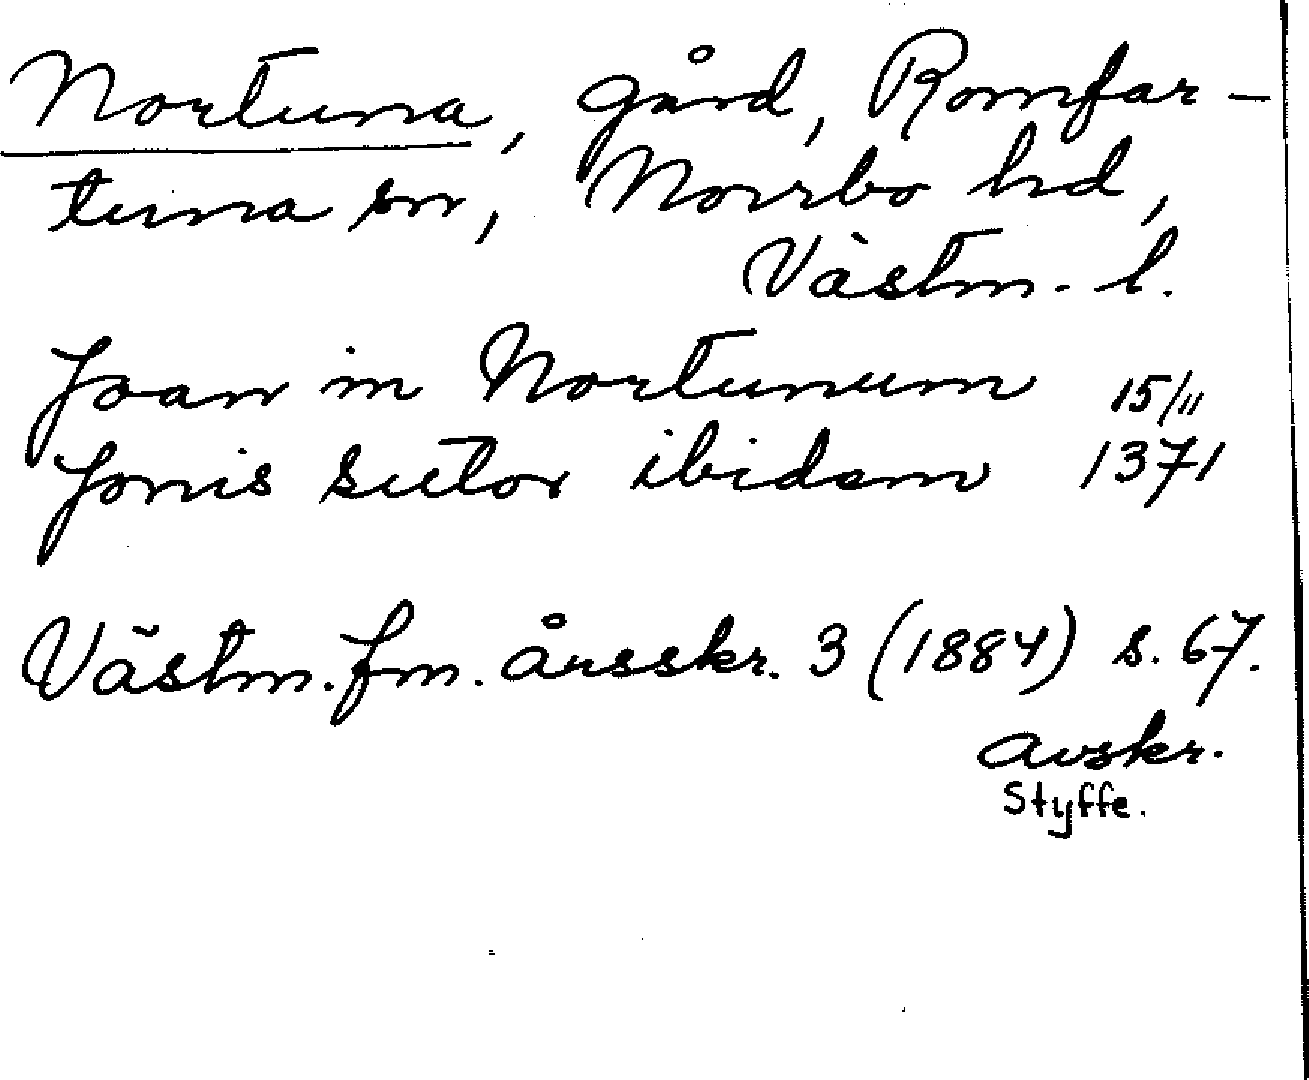 Nortuna, gård, Romfar-
tuna sn, Norrbo hd,
Västm. l.
Joan in Nortunum 15/11
Jonis sutor ibidem 1371
Västm. fm. årsskr. 3 (1884) s. 67.
avskr.
Styffe.